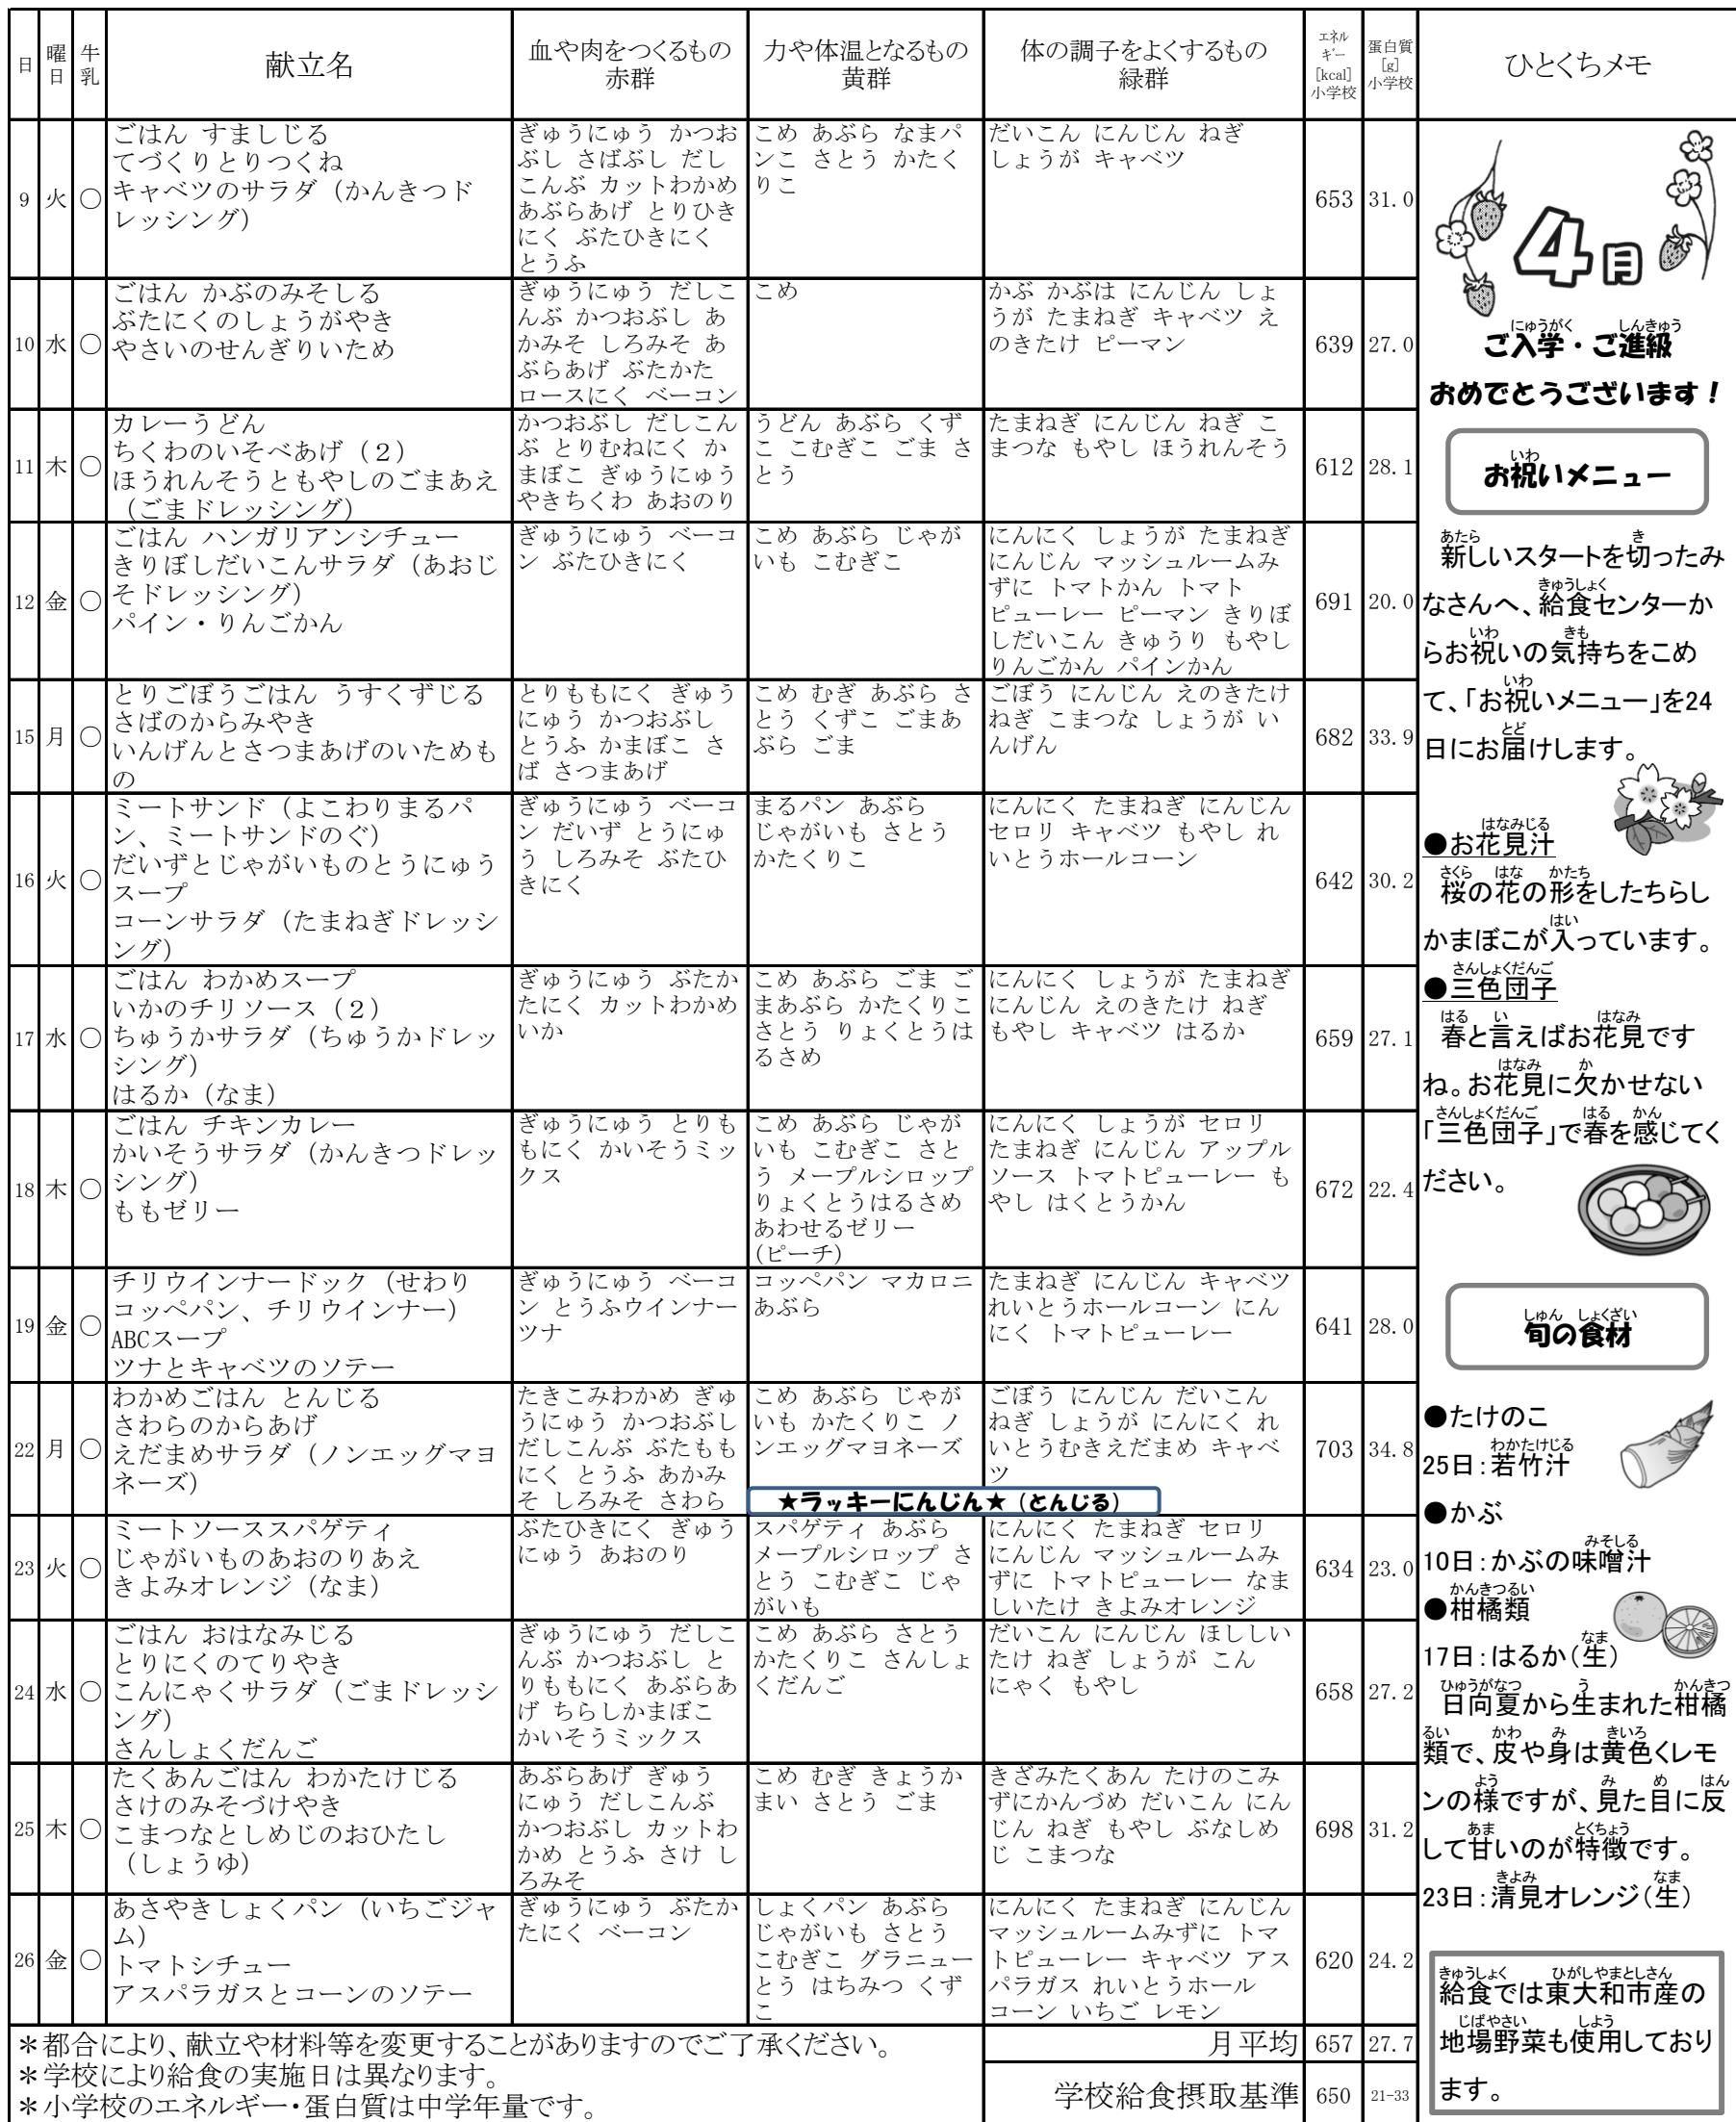 日 曜日 牛乳 献立名 血や肉をつくるもの 赤群 力や体温となるもの 黄群 体の調子をよくするもの 緑群 エネルギー [kcal] 小学校 蛋白質 [g] 小学校 ひとくちメモ
9 火 ○
ごはん すましじる
てづくりとりつくね
キャベツのサラダ（かんきつド
レッシング）
ぎゅうにゅう かつお
ぶし さばぶし だし
こんぶ カットわかめ
あぶらあげ とりひき
にく ぶたひきにく
とうふ
こめ あぶら なまパ
ンこ さとう かたく
りこ
だいこん にんじん ねぎ
しょうが キャベツ
653 31.0
10 水 ○
ごはん かぶのみそしる
ぶたにくのしょうがやき
やさいのせんぎりいため
ぎゅうにゅう だしこ
んぶ かつおぶし あ
かみそ しろみそ あ
ぶらあげ ぶたかた
ロースにく ベーコン
こめ
かぶ かぶは にんじん しょ
うが たまねぎ キャベツ え
のきたけ ピーマン
639 27.0
11 木 ○
カレーうどん
ちくわのいそべあげ（２）
ほうれんそうともやしのごまあえ
（ごまドレッシング）
かつおぶし だしこん
ぶ とりむねにく か
まぼこ ぎゅうにゅう
やきちくわ あおのり
うどん あぶら くず
こ こむぎこ ごま さ
とう
たまねぎ にんじん ねぎ こ
まつな もやし ほうれんそう
612 28.1
12 金 ○
ごはん ハンガリアンシチュー
きりぼしだいこんサラダ（あおじ
そドレッシング）
パイン・りんごかん
ぎゅうにゅう ベーコ
ン ぶたひきにく
こめ あぶら じゃが
いも こむぎこ
にんにく しょうが たまねぎ
にんじん マッシュルームみ
ずに トマトかん トマト
ピューレー ピーマン きりぼ
しだいこん きゅうり もやし
りんごかん パインかん
691 20.0
15 月 ○
とりごぼうごはん うすくずじる
さばのからみやき
いんげんとさつまあげのいためも
の
とりももにく ぎゅう
にゅう かつおぶし
とうふ かまぼこ さ
ば さつまあげ
こめ むぎ あぶら さ
とう くずこ ごまあ
ぶら ごま
ごぼう にんじん えのきたけ
ねぎ こまつな しょうが い
んげん
682 33.9
16 火 ○
ミートサンド（よこわりまるパ
ン、ミートサンドのぐ）
だいずとじゃがいものとうにゅう
スープ
コーンサラダ（たまねぎドレッシ
ング）
ぎゅうにゅう ベーコ
ン だいず とうにゅ
う しろみそ ぶたひ
きにく
まるパン あぶら
じゃがいも さとう
かたくりこ
にんにく たまねぎ にんじん
セロリ キャベツ もやし れ
いとうホールコーン
642 30.2
17 水 ○
ごはん わかめスープ
いかのチリソース（２）
ちゅうかサラダ（ちゅうかドレッ
シング）
はるか（なま）
ぎゅうにゅう ぶたか
たにく カットわかめ
いか
こめ あぶら ごま ご
まあぶら かたくりこ
さとう りょくとうは
るさめ
にんにく しょうが たまねぎ
にんじん えのきたけ ねぎ
もやし キャベツ はるか
659 27.1
18 木 ○
ごはん チキンカレー
かいそうサラダ（かんきつドレッ
シング）
ももゼリー
ぎゅうにゅう とりも
もにく かいそうミッ
クス
こめ あぶら じゃが
いも こむぎこ さと
う メープルシロップ
りょくとうはるさめ
あわせるゼリー
（ピーチ）
にんにく しょうが セロリ
たまねぎ にんじん アップル
ソース トマトピューレー も
やし はくとうかん
672 22.4
19 金 ○
チリウインナードック（せわり
コッペパン、チリウインナー）
ABCスープ
ツナとキャベツのソテー
ぎゅうにゅう ベーコ
ン とうふウインナー
ツナ
コッペパン マカロニ
あぶら
たまねぎ にんじん キャベツ
れいとうホールコーン にん
にく トマトピューレー
641 28.0
22 月 ○
わかめごはん とんじる
さわらのからあげ
えだまめサラダ（ノンエッグマヨ
ネーズ）
たきこみわかめ ぎゅ
うにゅう かつおぶし
だしこんぶ ぶたもも
にく とうふ あかみ
そ しろみそ さわら
こめ あぶら じゃが
いも かたくりこ ノ
ンエッグマヨネーズ
ごぼう にんじん だいこん
ねぎ しょうが にんにく れ
いとうむきえだまめ キャベ
ツ
703 34.8
★ラッキーにんじん★（とんじる）
23 火 ○
ミートソーススパゲティ
じゃがいものあおのりあえ
きよみオレンジ（なま）
ぶたひきにく ぎゅう
にゅう あおのり
スパゲティ あぶら
メープルシロップ さ
とう こむぎこ じゃ
がいも
にんにく たまねぎ セロリ
にんじん マッシュルームみ
ずに トマトピューレー なま
しいたけ きよみオレンジ
634 23.0
24 水 ○
ごはん おはなみじる
とりにくのてりやき
こんにゃくサラダ（ごまドレッシ
ング）
さんしょくだんご
ぎゅうにゅう だしこ
んぶ かつおぶし と
りももにく あぶらあ
げ ちらしかまぼこ
かいそうミックス
こめ あぶら さとう
かたくりこ さんしょ
くだんご
だいこん にんじん ほししい
たけ ねぎ しょうが こん
にゃく もやし
658 27.2
25 木 ○
たくあんごはん わかたけじる
さけのみそづけやき
こまつなとしめじのおひたし
（しょうゆ）
あぶらあげ ぎゅう
にゅう だしこんぶ
かつおぶし カットわ
かめ とうふ さけ し
ろみそ
こめ むぎ きょうか
まい さとう ごま
きざみたくあん たけのこみ
ずにかんづめ だいこん にん
じん ねぎ もやし ぶなしめ
じ こまつな
698 31.2
26 金 ○
あさやきしょくパン（いちごジャ
ム）
トマトシチュー
アスパラガスとコーンのソテー
ぎゅうにゅう ぶたか
たにく ベーコン
しょくパン あぶら
じゃがいも さとう
こむぎこ グラニュー
とう はちみつ くず
こ
にんにく たまねぎ にんじん
マッシュルームみずに トマ
トピューレー キャベツ アス
パラガス れいとうホール
コーン いちご レモン
620 24.2
＊都合により、献立や材料等を変更することがありますのでご了承ください。
＊学校により給食の実施日は異なります。
＊小学校のエネルギー・蛋白質は中学年量です。
月平均 657 27.7
学校給食摂取基準 650 21-33
4月
にゅうがく しんきゅう
ご入学・ご進級
おめでとうございます！
いわ
お祝いメニュー
あたら き
新しいスタートを切ったみ
きゅうしょく
なさんへ、給食センターか
いわ きも
らお祝いの気持ちをこめ
いわ
て、「お祝いメニュー」を24
とど
日にお届けします。
はなみじる
●お花見汁
さくら はな かたち
桜の花の形をしたちらし
はい
かまぼこが入っています。
さんしょくだんご
●三色団子
はる い はなみ
春と言えばお花見です
はなみ か
ね。お花見に欠かせない
さんしょくだんご はる かん
「三色団子」で春を感じてく
ださい。
しゅん しょくざい
旬の食材
●たけのこ
わかたけじる
25日：若竹汁
●かぶ
みそしる
10日：かぶの味噌汁
かんきつるい
●柑橘類
なま
17日：はるか（生）
ひゅうがなつ う かんきつ
日向夏から生まれた柑橘
るい かわ み きいろ
類で、皮や身は黄色くレモ
よう み め はん
ンの様ですが、見た目に反
あま とくちょう
して甘いのが特徴です。
きよみ なま
23日：清見オレンジ（生）
きゅうしょく ひがしやまとしさん
給食では東大和市産の
じばやさい しよう
地場野菜も使用しており
ます。